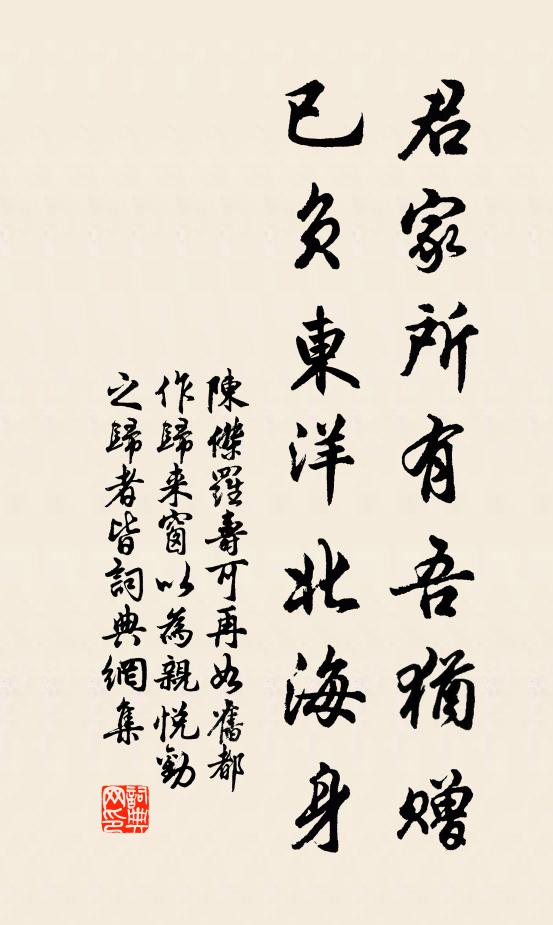 君家所有吾猶贈
已負東洋北海身
陳傑羅壽可再如舊都
作歸来窗以為親悅勸
之歸者皆詞典網集
詞典网印